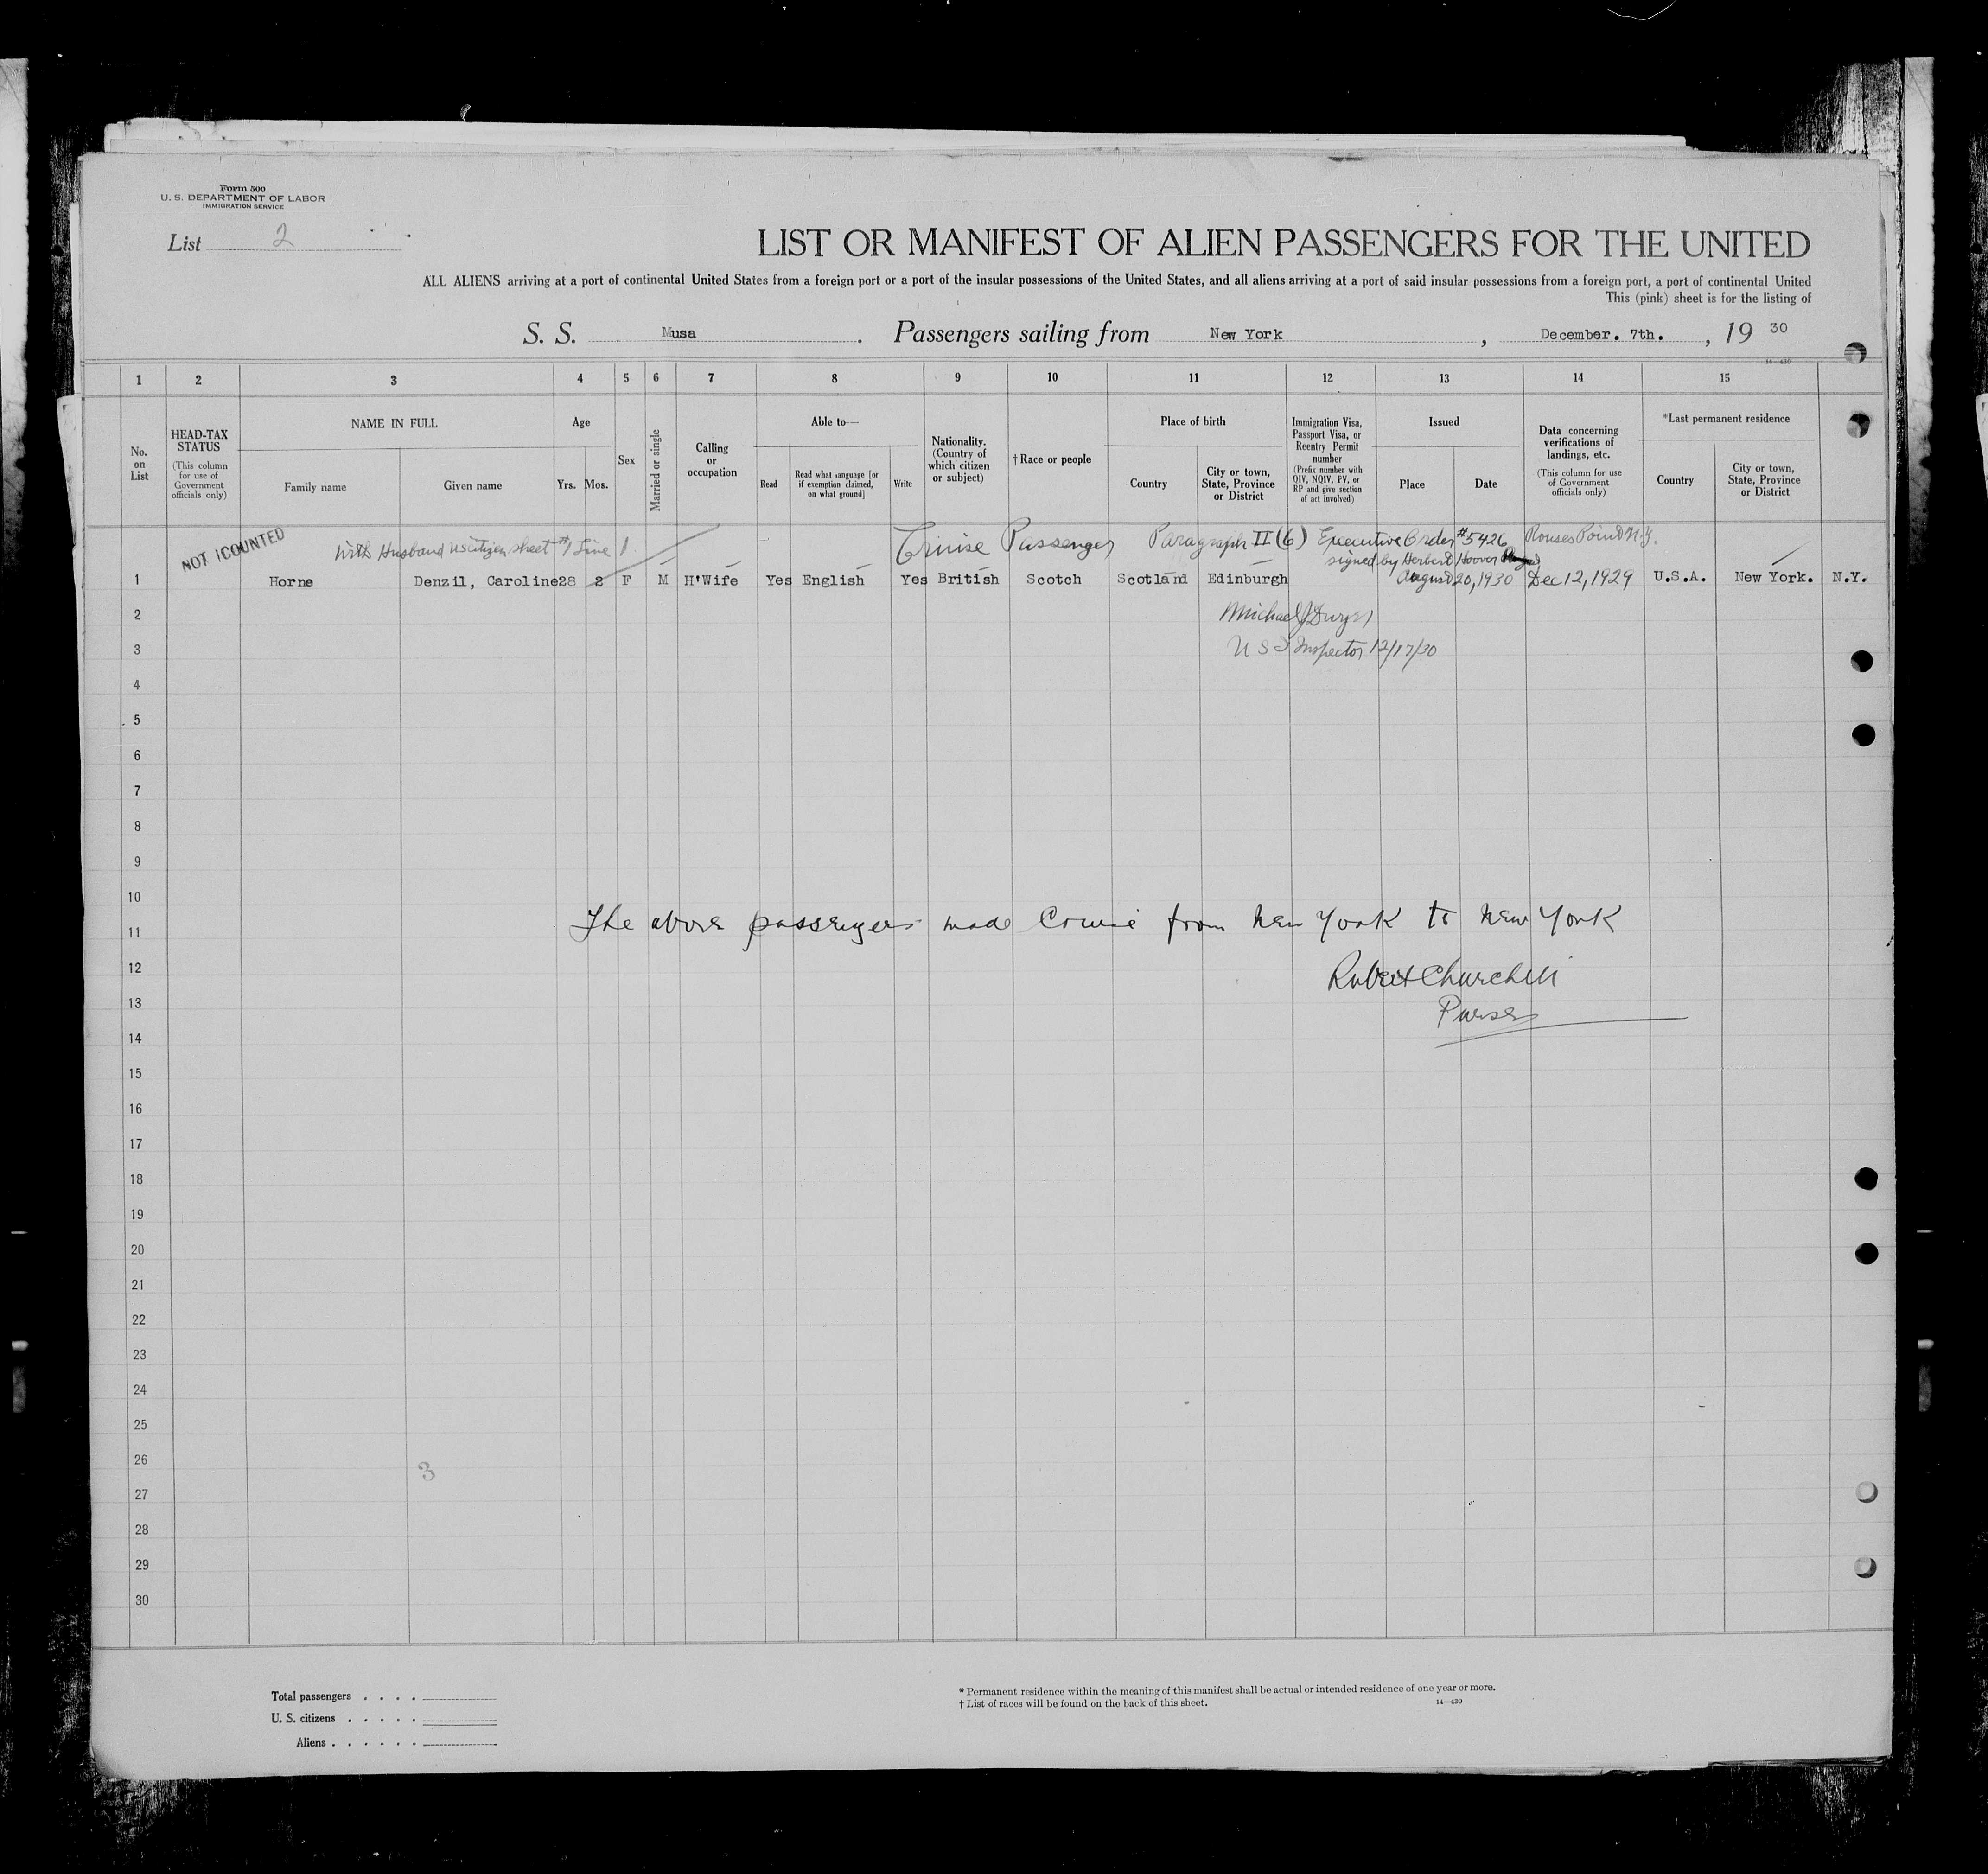 Form 500
U. S. DEPARTMENT OF LABOR
IMMIGRATION SERVICE
List 2
LIST OR MANIFEST OF ALIEN PASSENGERS FOR THE UNITED
ALL ALIENS arriving at a port of continental United States from a foreign port or a port of the insular possessions of the United States, and all aliens arriving at a port of said insular possessions from a foreign port, a port of continental United
This (pink) sheet is for the listing of
S. S. Musa. Passengers sailing from New York, December. 7th., 19 30
14—430
1 2 3 4 5 6 7 8 9 10 11 12 13 14 15
No. on List
HEAD-TAX STATUS
(This column for use of Government officials only)
NAME IN FULL
Family name
Given name
Age
Yrs. Mos.
Sex
Married or single
Calling or occupation
Able to—
Read
Read what language [or if exemption claimed, on what ground]
Write
Nationality. (Country of which citizen or subject)
†Race or people
Place of birth
Country
City or town, State, Province or District
Immigration Visa, Passport Visa, or Reentry Permit number
(Prefix number with QIV, NQIV, PV, or RP and give section of act involved)
Issued
Place
Date
Data concerning verifications of landings, etc.
(This column for use of Government officials only)
*Last permanent residence
Country
City or town, State, Province or District
NOT COUNTED
With Husband US Citizen sheet #1 Line 1
Cruise Passenger Paragraph II (6) Executive Order #5426 Rouses Point N.Y.
signed by Herbert Hoover
August 20, 1930
1 Horne Denzil, Caroline 28 2 F M H'Wife Yes English Yes British Scotch Scotland Edinburgh Dec 12, 1929 U.S.A. New York. N.Y.
2 Michael J
3 U S I Inspector 12/17/30
4
5
6
7
8
9
10
11 The above passengers made Cruise from New York to New York
12 Robert Churchill
13 Purser
14
15
16
17
18
19
20
21
22
23
24
25
26
3
27
28
29
30
Total passengers . . . .
U. S. citizens . . . . .
Aliens . . . . . .
* Permanent residence within the meaning of this manifest shall be actual or intended residence of one year or more.
† List of races will be found on the back of this sheet. 14—430